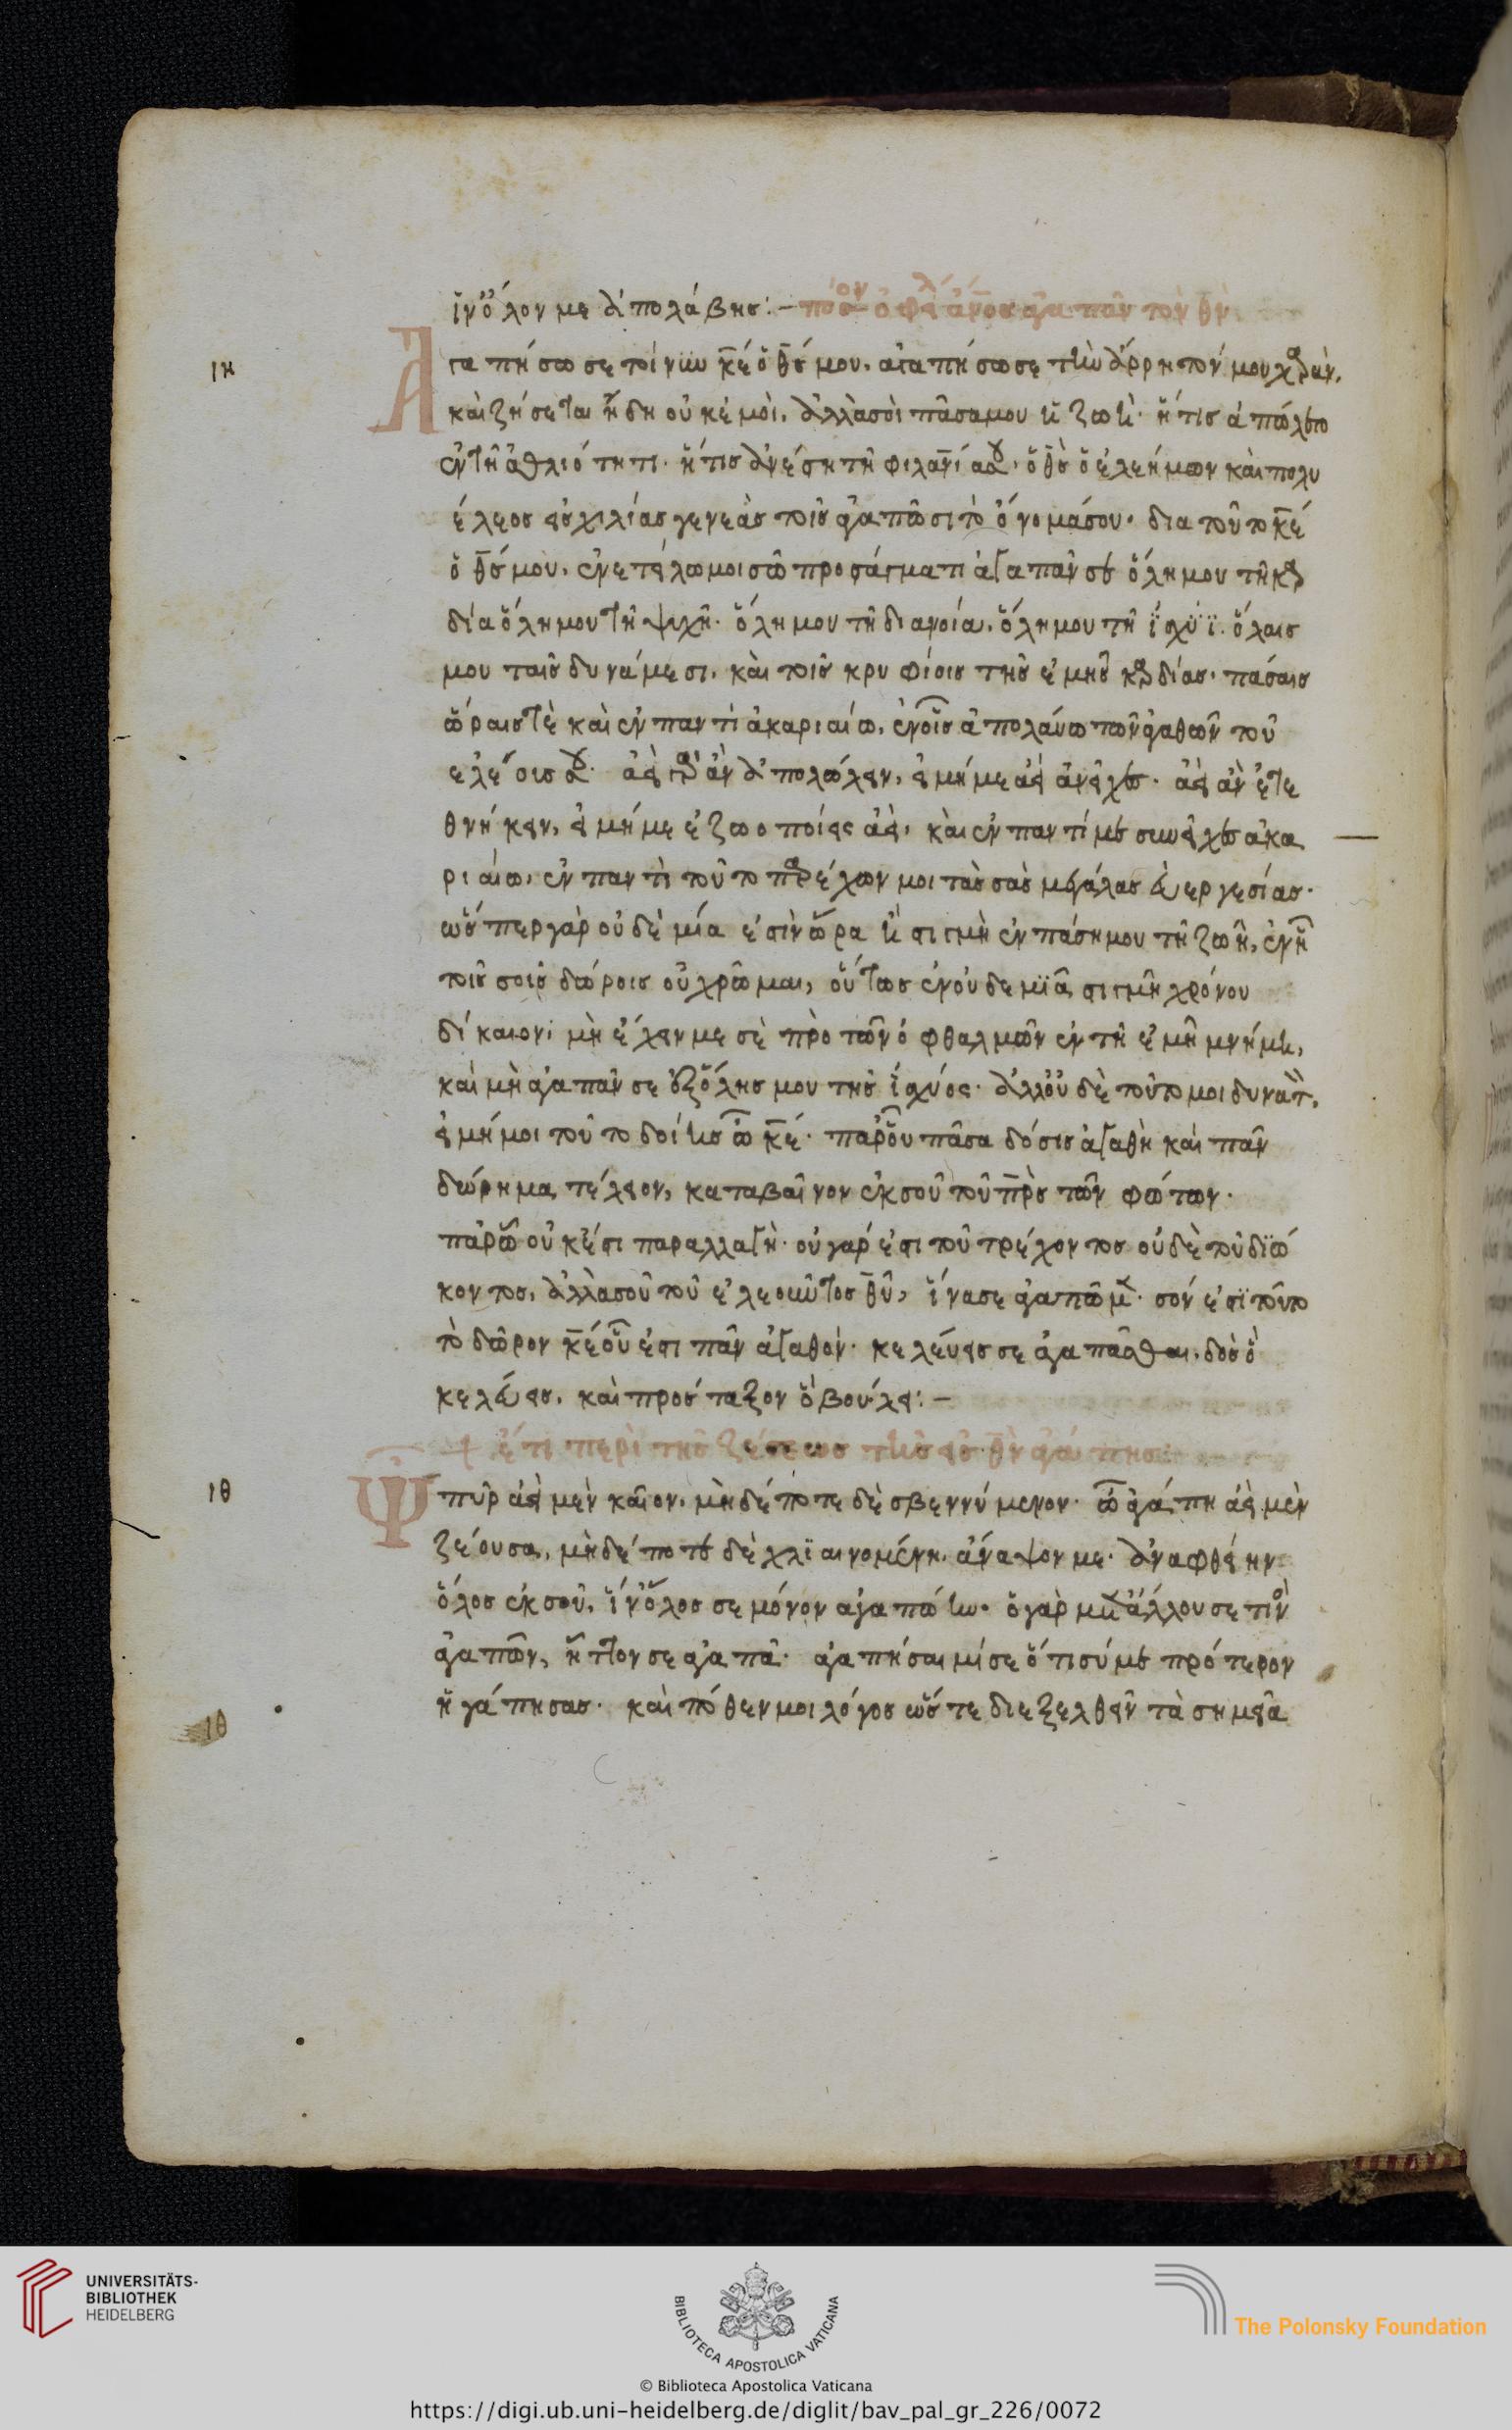 ἵν' ὅλον με ἀπολάβῃς:— πόσον ὀφείλει ἄν̅ος ἀγαπᾶν τὸν θ̅ν
ιη
Ἀγαπήσω σε τοίνυν κ̅ε ὁ θ̅ς μου. ἀγαπήσω σε τὴν ἄρρητόν μου χαράν,
καὶ ζήσεται ἤδη οὐκ ἐμοὶ, ἀλλὰ σοὶ πᾶσα μου ἡ ζωή· ἥτις ἀπώλετο
ἐν τῇ ἀθλιότητι· ἥτις ἀνέστη τῇ φιλαν̅ίᾳ σου, ὁ θ̅ς ὁ ἐλεήμων καὶ πολυ
έλεος εἰς χιλίας γενεὰς τοῖς ἀγαπῶσι τὸ ὄνομά σου· δια τοῦτο κ̅ε
ὁ θ̅ς μου, ἐνετείλω μοι σῷ προστάγματι ἀγαπᾶν σε ὅλῃ μου τῇ καρ
δίᾳ ὅλῃ μου τῇ ψυχῇ· ὅλῃ μου τῇ διανοίᾳ, ὅλῃ μου τῇ ἰσχύϊ. ὅλαις
μου ταῖς δυνάμεσι, καὶ τοῖς κρυφίοις τῆς ἐμῆς καρδίας· πάσαις
ὥραις τὲ καὶ ἐν παντὶ ἀκαριαίῳ, ἐν οἷς ἀπολαύω τῶν ἀγαθῶν τοῦ
ἐλέους σου· ἀεὶ γὰρ ἂν ἀπολώλειν, εἰ μή με ἀεὶ ἀνεῖχες· ἀεὶ ἂν ἐτε
θνήκειν, εἰ μή με ἐζωοποίεις ἀεί, καὶ ἐν παντί με συνεῖχες ἀκα
ριαίῳ, ἐν παντὶ τοῦτο παρέχων μοι τὰς σὰς μεγάλας εὐεργεσίας·
ὥσπερ γὰρ οὐδὲ μία ἐστὶν ὥρα ἢ στιγμὴ ἐν πάσῃ μου τῇ ζωῇ, ἐν ᾗ
τοῖς σοῖς δώροις οὐ χρῶμαι, οὕτως ἐν οὐδεμϊᾷ στιγμῇ χρόνου
δίκαιον μὴ ἔχειν με σὲ πρὸ τῶν ὀφθαλμῶν ἐν τῇ ἐμῇ μνήμῃ,
καὶ μὴ ἀγαπᾶν σε ἐξ ὅλης μου τῆς ἰσχύος· ἀλλ' οὐδὲ τοῦτο μοι δυνατὸν,
εἰ μή μοι τοῦτο δοίης ὦ κ̅ε· παρ' οὗ πᾶσα δόσις ἀγαθὴ καὶ πᾶν
δώρημα τέλειον, καταβαῖνον ἐκ σοῦ τοῦ π̅ρ̅ς τῶν φώτων·
παρ' ᾧ οὐκ ἔστι παραλλαγή· οὐ γάρ ἐστι τοῦ τρέχοντος οὐδὲ τοῦ διώ
κοντος, ἀλλὰ σοῦ τοῦ ἐλεοῦντος θ̅υ, ἵνα σε ἀγαπῶμεν· σόν ἐστϊ τοῦτο
τὸ δῶρον κ̅ε οὗ ἐστι πᾶν ἀγαθόν· κελεύεις σε ἀγαπᾶσθαι, δὸς ὃ
κελεύεις, καὶ πρόσταξον ὃ βούλει:—
ἔτι περὶ τῆς ζέσεως τῆς εἰς θ̅ν ἀγάπης
ιθ
Ὦ πῦρ ἀεὶ μὲν καῖον, μηδέποτε δὲ σβεννύμενον· ὦ ἀγάπη ἀεὶ μὲν
ζέουσα, μηδέποτε δὲ χλϊαινομένη, ἄναψόν με· ἀναφθείην
ὅλος ἐκ σοῦ, ἵν' ὅλος σε μόνον ἀγαπῴην· ὁ γὰρ μετ' ἄλλου σε τινὸς
ἀγαπῶν, ἧττον σε ἀγαπᾷ· ἀγαπήσαιμί σε ὅτι σύ με πρότερον
ἠγάπησας· καὶ πόθεν μοι λόγος ὥστε διεξελθεῖν τὰ σημεῖα
ιθ
UNIVERSITÄTS-
BIBLIOTHEK
HEIDELBERG
BIBLIOTECA APOSTOLICA VATICANA
The Polonsky Foundation
© Biblioteca Apostolica Vaticana
https://digi.ub.uni-heidelberg.de/diglit/bav_pal_gr_226/0072